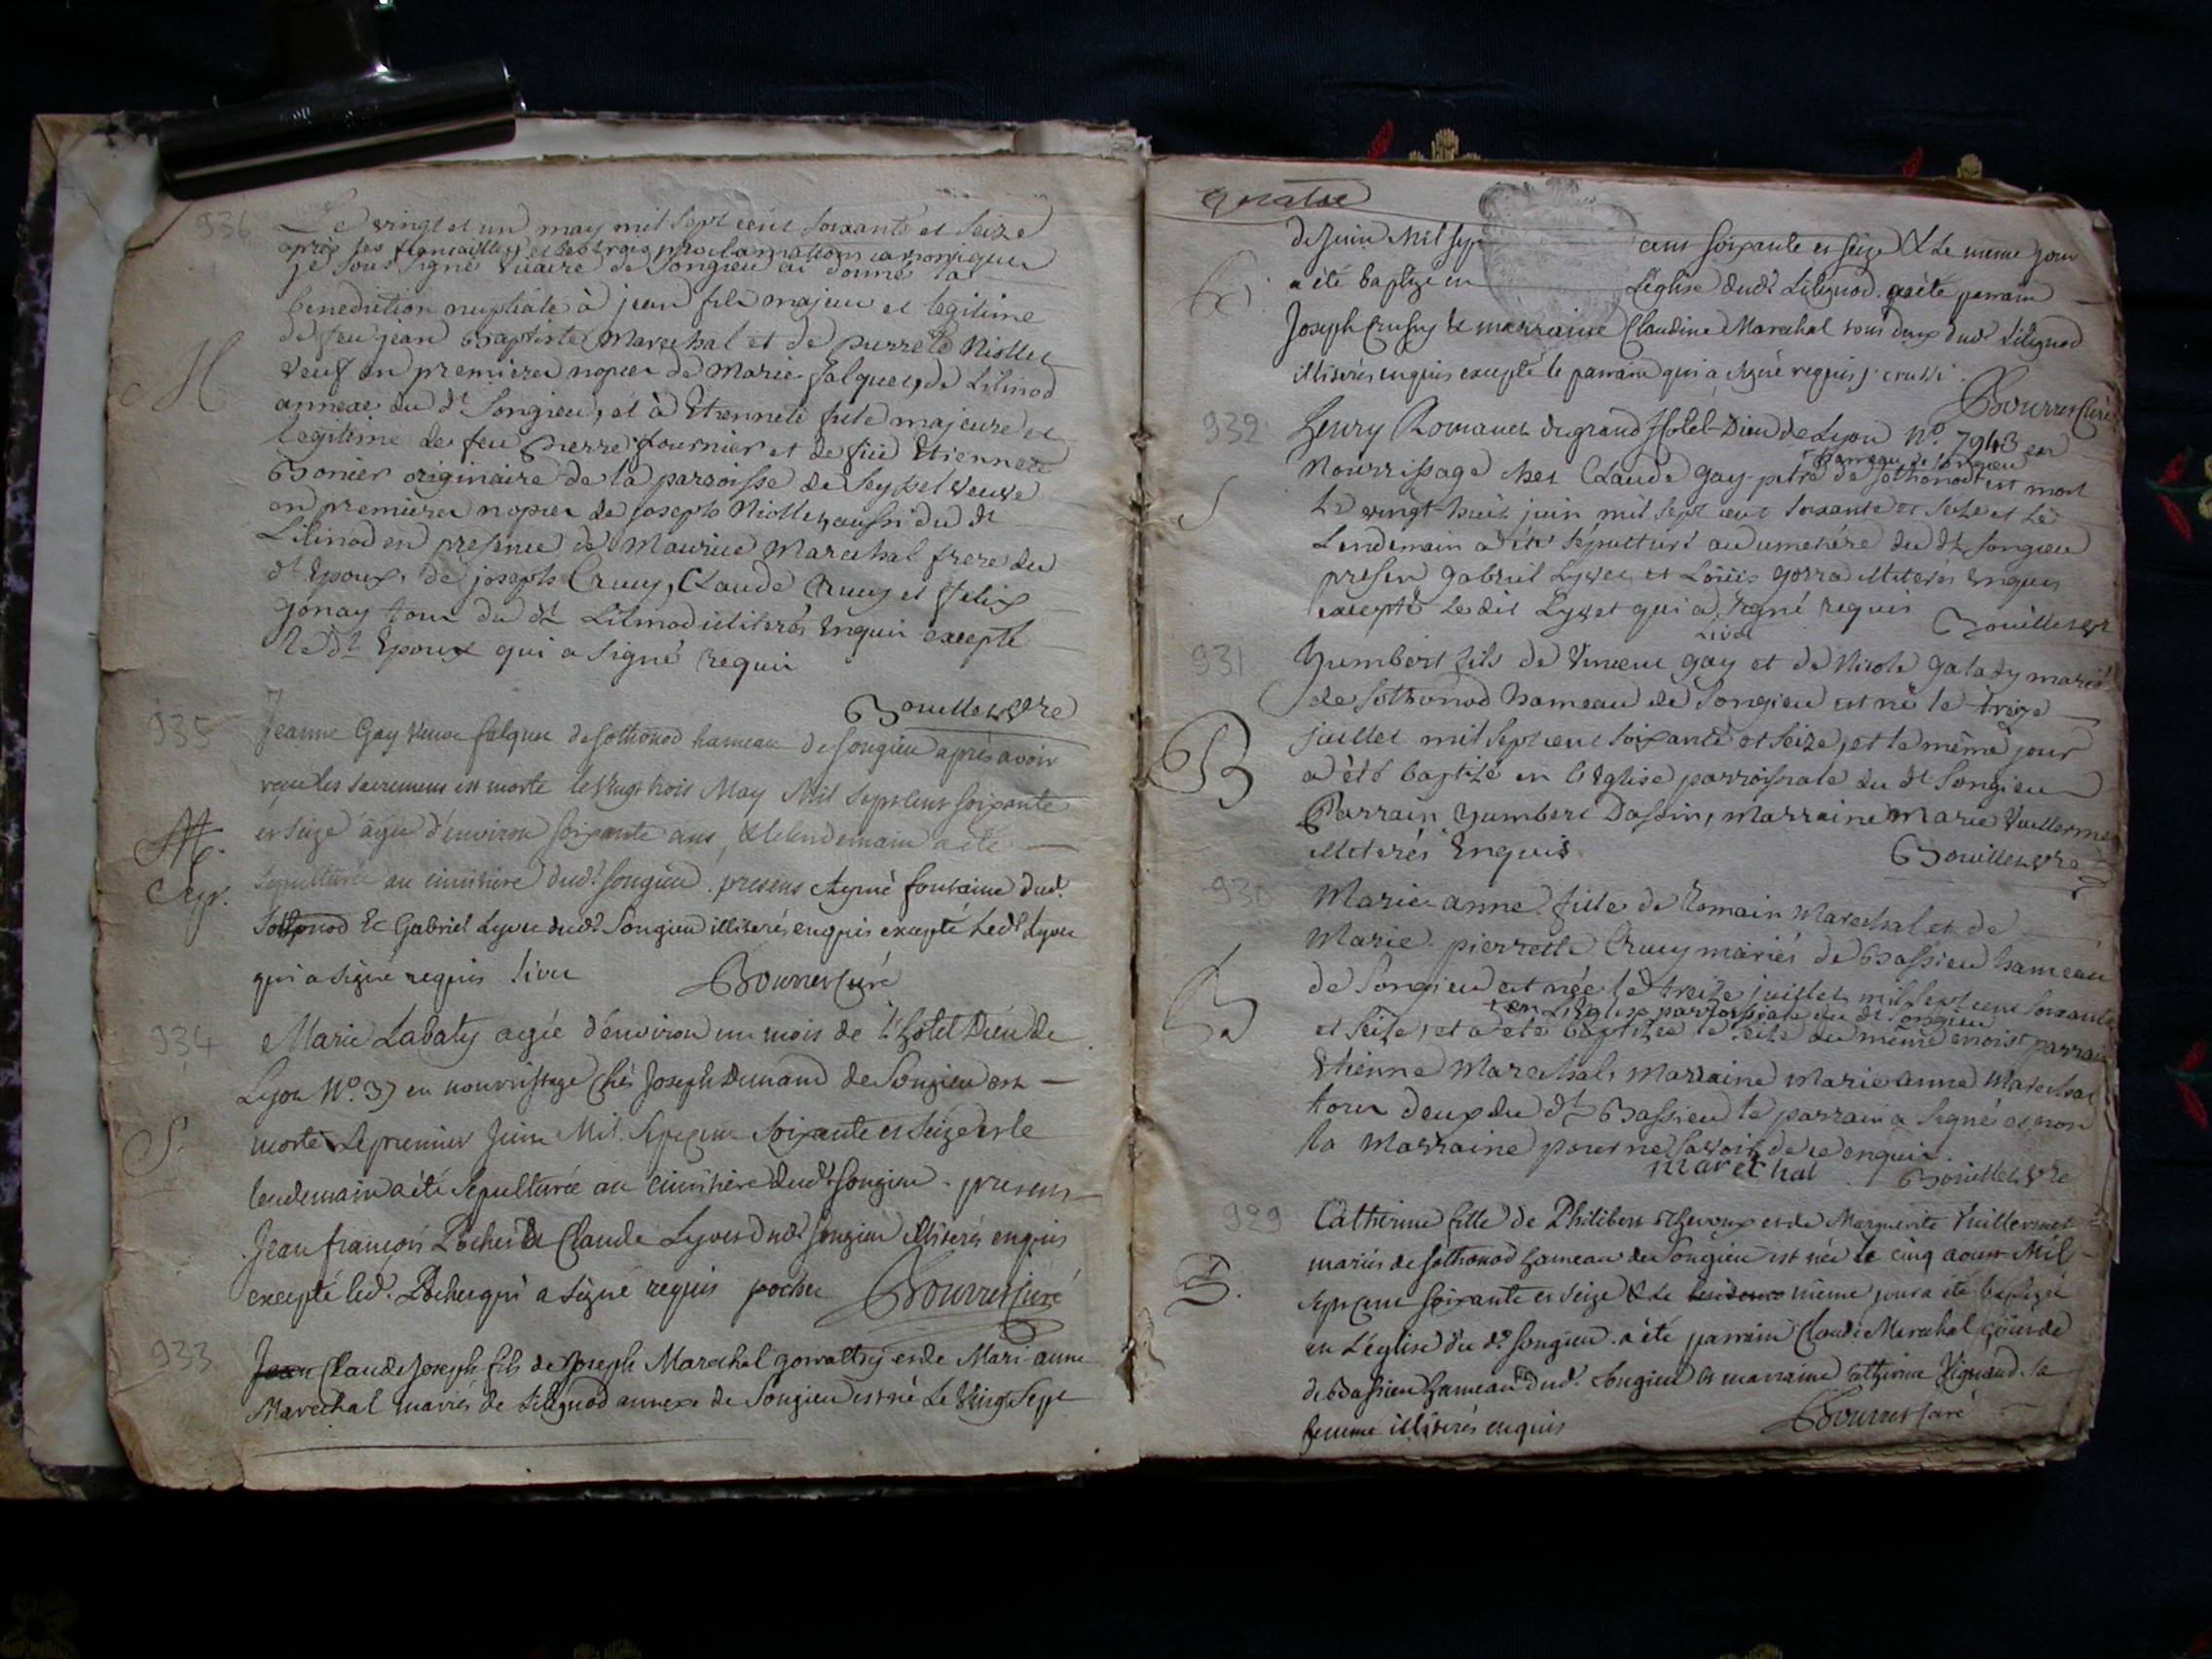 936
Le vingt et un may mil sept cent soixante et seize
après les fiançailles et les trois proclamations canoniques
je sous signé vicaire de Songieu ai donné la
benediction nuptiale à jean fils majeur et legitime
de feu jean Baptiste Marechal et de pierrete Niollet
veuf en premieres nopces de Marie falquet, de Lilinod
annexe du dt Songieu, et à Etiennete fille majeure et
legitime de feu pierre fournier et de feue Etiennete
Bonier originaire de la paroisse de Seyssel veuve
en premieres nopces de joseph Niollet, aussi du dt
Lilinod en presence de Maurice Marechal frere du
dt Epoux, de joseph Crucy, Claude Crucy et felix
gonay tous du dt Lilinod illiterés Enquis excepté
le dt Epoux qui a signé requis
M
Bouillet vre
935
Jeanne Gay veuve falquet de sothonod hameau de songieu après avoir
reçu les sacremens est morte le vingt trois May Mil sept cent soixante
et seize agée d'environ soixante ans, & le lendemain a été
sepulturée au cimitiere dud. songieu. presens Aymé fontaine dud.
Sothonod & Gabriel Lyvet dud. Songieu illiterés enquis excepté led. Lyvet
qui a signé requis livet Bourret Curé
Sep.
934
Marie Labaty agée d'environ un mois de l'hotel Dieu de
Lyon N.o 37 en nourrissage chés Joseph Dunand de Songieu est
morte le premier Juin Mil. Sept cent Soixante et Seize et le
lendemain a été sepulturée au cimitiere dud. songieu. presens
Jean françois Pochet & Claude Lyvet dud. songieu illiterés enquis
excepté led. Pochet qui a signé requis pochet Bourret Curé
S.
933
Jean Claude Joseph fils de Joseph Marechal et de Mari anne
Marechal mariés de Lilignod annexe de Songieu est né Le Vingt Sept
quatre
de Juin Mil sept cens soixante et seize & Le meme jour
a été baptizé en L'église dud. Lilignod. a été parrain
Joseph & marraine Claudine Marechal tous deux dud. Lilignod
illiterés enquis excepté le parrain qui a signé requis
Bourret Curé
932
henry Romanet du grand Hotel-Dieu de Lyon N.o 7943 en
Nourrissage chez Claude gay de sothonod est mort
hameau de songieu
Le vingt-huit juin mil sept cent soixante et seize et le
Lendemain a été sépulturé au cimetiére du dt songieu
presen gabriel Lyvet et Loüis gorra illiterés Enquis
excepté le dit Lyvet qui a signé requis
livet
Bouillet vr
S
931
humbert fils de Vincent gay et de Nicole galady mariés
de sothonod hameau de Songieu est né le treize
juillet mil sept cent soixante et seize, et le même jour
a été baptizé en l'Eglise parroissiale du dt Songieu
Parrain humbert Dassin, marraine marie Vuillermet
illiterés Enquis Bouillet vre
B
930
Marie-anne fille de Romain Marechal et de
Marie-pierrette Crucy mariés de Bassieu hameau
de Songieu est née le treize juillet mil sept cent soixante
en L'Eglise parroissiale du dt Songieu
et seize, et a été baptizée le seize du même mois parrain
Etienne Marechal, marraine Marie anne Marechal
tous deux du dt Bassieu le parrain a signé et non
la Marraine pour ne savoir de ce enquis.
marechal
Bouillet vre
B
929
Catherine fille de Philibert et de Marguerite Vuillermet
mariés de sothonod hameau de Songieu est née le cinq aoust Mil
Sept cent soixante et seize & Le même jour a été baptizée
en L'église du dt Songieu. a été parrain Claude Marechal
de Bassieu hameau dud. Songieu et marraine Catherine la
femme illiterés enquis Bourret Curé
B.